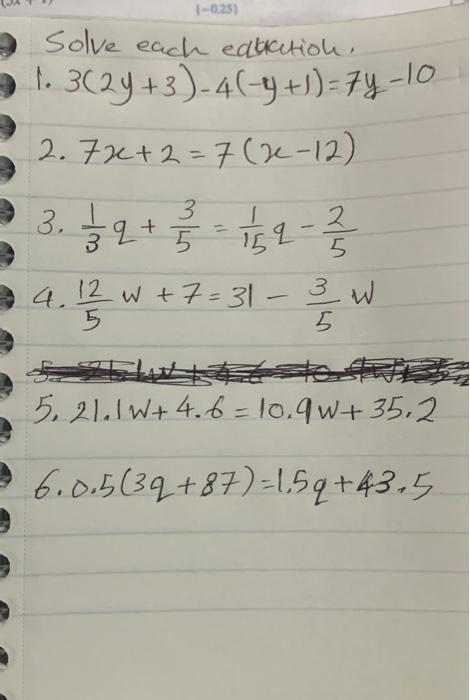 (-0.25)
Solve each
1. 3(2y+3)-4(-y+1)=7y-10
2. 7x+2=7(x-12)
3. 1/3 q + 3/5 = 1/15 q - 2/5
4. 12/5 w + 7 = 31 - 3/5 w
5. 21.1w+4.6=10.9w+35.2
6. 0.5(3q+87)=1.5q+43.5